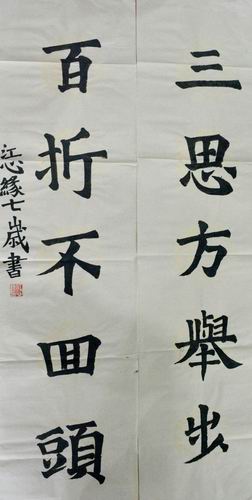 三思方舉出
百折不回頭
七歲書